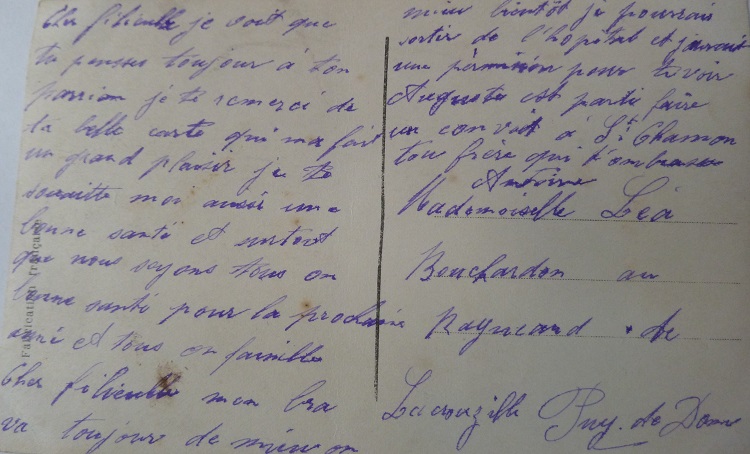 Cher filieulle je voit que
tu penses toujour à ton
parrion je te remerci de
ta belle carte qui ma fait
un grand plaisir je te
souaitte moi aussi une
bonne santé et surtout
que nous soyons tous en
bonne santé pour la prochaine
anné et tous en famille
Cher filieulle mon bra
va toujour de mieu en
mieu bientôt je pourrais
sortir de l'hopital et j'aurait
une permision pour te voir
Auguste est parti faire
un convoit à St Chamon
ton frère qui t'embrasse
Antoine
Mademoiselle Léa
Bouchardon au
de
Lacrouzille Puy. de Dome
Fabrication française